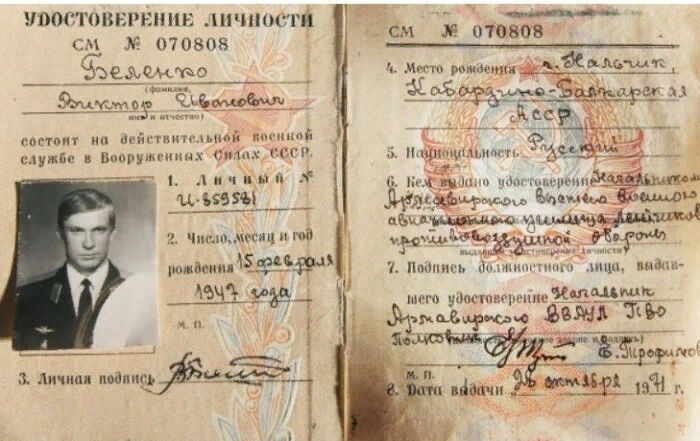 УДОСТОВЕРЕНИЕ ЛИЧНОСТИ
СМ № 070808
Беленко
(фамилия,
Виктор Иванович
имя и отчество)
состоит на действительной военной
службе в Вооруженных Силах СССР.
1. Личный №
И-859581
2. Число, месяц и год
рождения 15 февраля
1947 года
М. П.
3. Личная подпись
СМ № 070808
4. Место рождения г. Нальчик,
Кабардино-Балкарская
АССР
5. Национальность Русский
6. Кем выдано удостоверение Начальником
Армавирского высшего военного
авиационного училища летчиков
противовоздушной обороны
7. Подпись должностного лица, выдав-
шего удостоверение Начальник
Армавирского ВВАУЛ ПВО
полковник Е. Трофимов
М. П.
8. Дата выдачи 26 октября 1971 г.